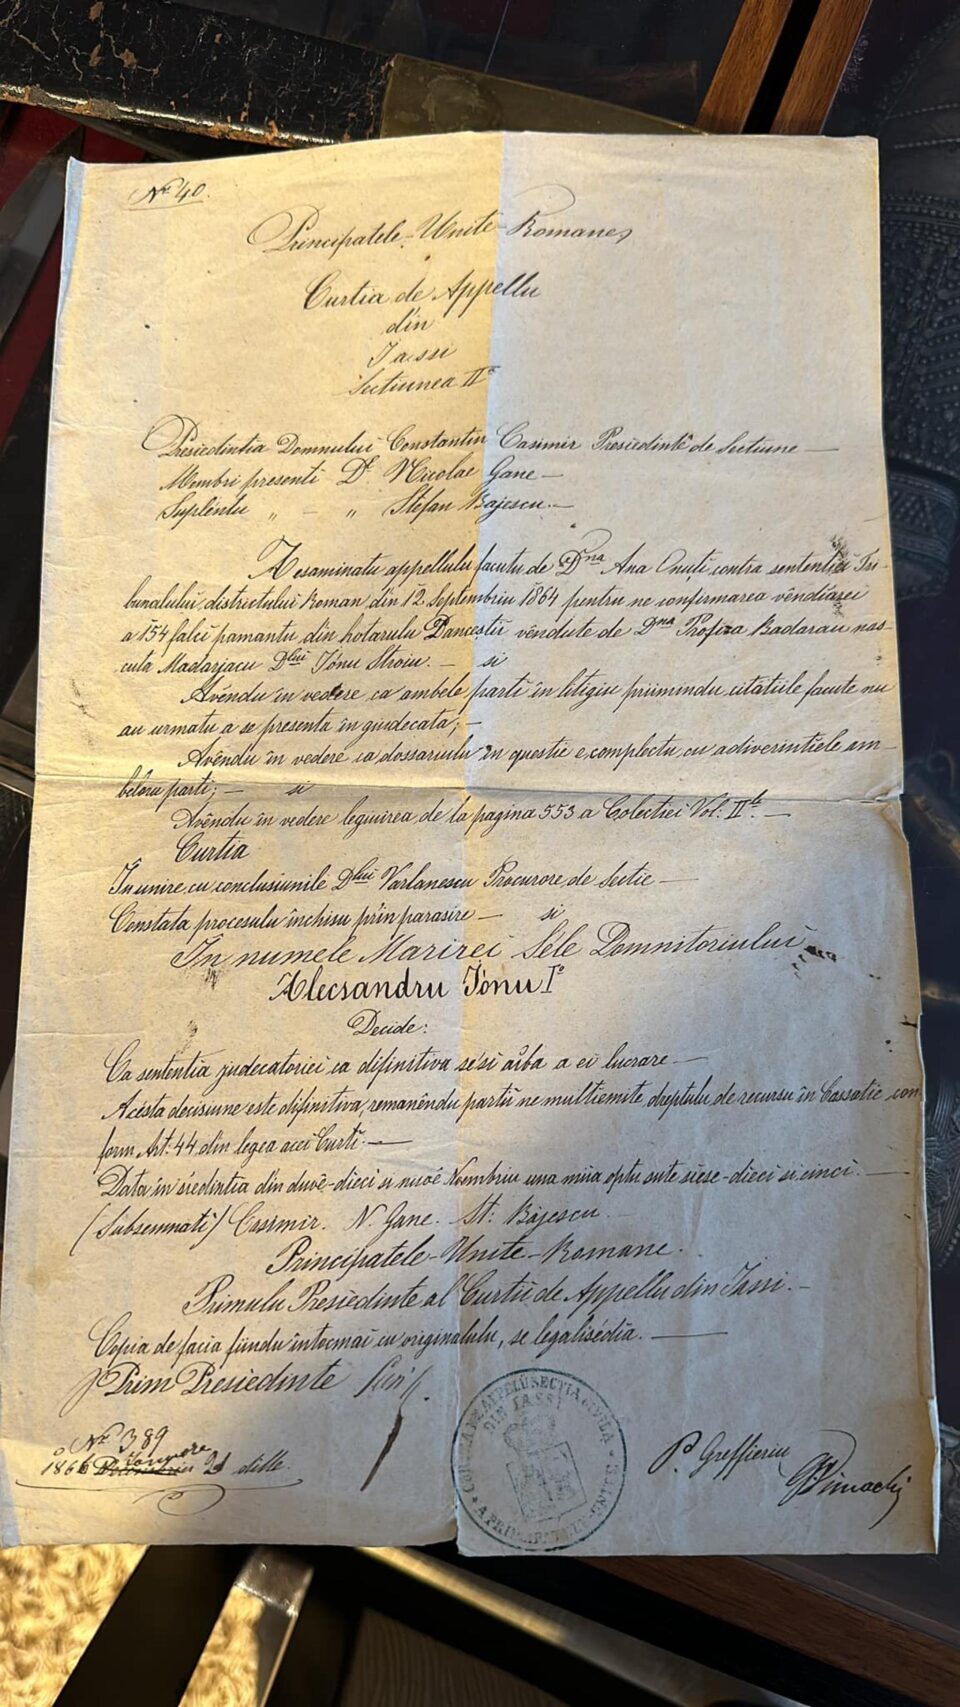 No 40.
Principatele-Unite-Romane
Curtia de Appellu
din
Jassi
Sectiunea IIa
Presiedintia Domnului Constantin Casimir Presiedinte de Sectiune —
Membri presenti Dl. Nicolae Gane —
Suplentu " — " Stefan Bajescu. —
Esaminatu appellulu facutu de Dna Ana Enuți contra sentenția Tri-
bunalului districtului Roman din 12 Septembriu 1864 pentru ne confirmarea vêndiarei
a 154 falci pamantu din hotarulu Dancestii vêndute de Dna Profira Badarau nas-
cuta Madarjacu Dlui Iónu Stroiu. — si
Avêndu în vedere ca ambele parti în litigiu priimindu citatiile facute nu
au urmatu a se presenta în giudecata; —
Avêndu în vedere ca dossariulu in questie e complectu cu adiverintiele am-
beloru parti; — si
Avêndu în vedere leguirea de la pagina 553 a Colectiei Vol: II —
Curtia
În unire cu conclusiunile Dlui Varlanescu Procurore de Sectie —
Constata procesulu închisu prin parasire — si
În numele Marirei Sele Domnitoriului
Alecsandru Iónu I
Decide:
Ca sententia judecatoriei ca difinitiva se'si aiba a ei lucrare —
Acésta decisiune este difinitiva, remanêndu partii ne multiemite dreptulu de recursu în Cassatie con
form Art: 44 din legea acei Curti. —
Data în siedintia din duve-dieci si nuoé Noembriu una miia optu sute siese-dieci si cinci. —
(Subsemnati) Casimir. N. Gane. St: Bajescu.
Principatele-Unite-Romane.
Primulu Presiedinte al Curtii de Appellu din Jassi. —
Copia de facia fiindu întocmai cu originalulu, se legalisédia. —
Prim Presiedinte
No 389
1866 21 dille
P. Greffieru
CURTEA DE APPELU SECTIA CIVILA
DIN IASSI
A PRINCIPATELE-UNITE